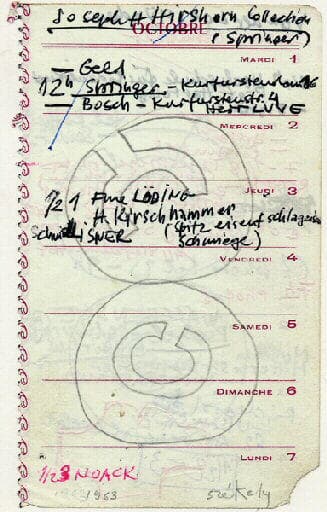 Joseph H Hirshorn Collection
OCTOBRE
(Springer)
MARDI 1
— Geld
12h Springer - Kurfürstendamm
— Bosch - Kurfürstenstr. 4
Herr LUVE
MERCREDI 2
JEUDI 3
1/2 1 Frue LÖDING
H. Kirschhammer
(Spitz eisen f schlagen
Schmiege)
VENDREDI 4
SAMEDI 5
DIMANCHE 6
LUNDI 7
1/2 3 NOACK
1953
Székely